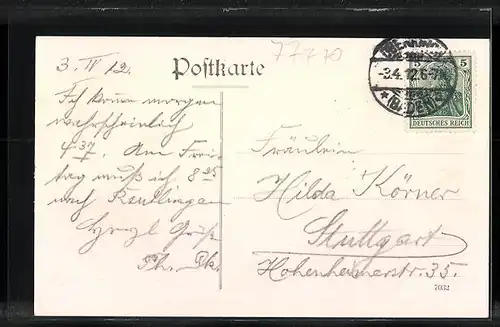 77770
3. IV 12.
Postkarte
Ich komme morgen
wahrscheinlich
4 37. Am Frei-
tag muß ich 8 25
nach Reutlingen
Herzl Grüße
-3.4.12.6-7N
* (BADEN)
5
5
DEUTSCHES REICH
Fräulein
Hilda Körner
Stuttgart
Hohenheimerstr. 35.
7032